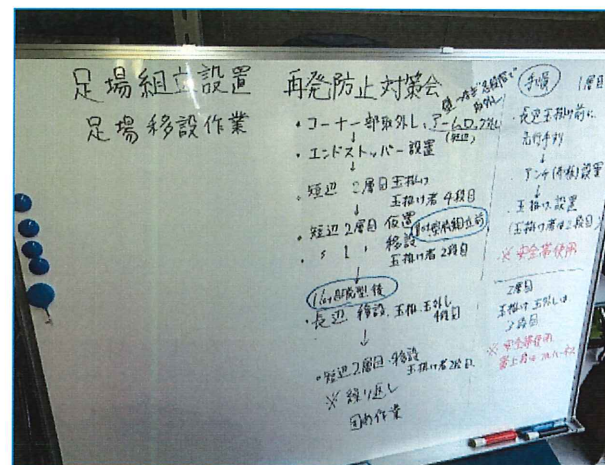 足場組立設置
足場移設作業
再発防止対策会
・コーナー部取外し、アームロック外し
(短辺)
↓
・エンドストッパー設置
↓
・短辺 2層目 玉掛け
玉掛け者 4段目
↓
・短辺 2層目 仮置
組立前
・〃 1 〃 移設
玉掛け者 2段目
↓
脱型後
・長辺 移設 玉掛、玉外し
4段目
↓
・短辺 2層目 移設
玉掛け者2段目
※ 繰り返し
作業
手順
1層目
・長辺玉掛け前に
先行手すり
↓
アンチ(布板)設置
↓
・玉掛け、設置
(玉掛け者は2段目)
※ 安全帯使用
2層目
玉掛け 玉外しは
3段目
※ 安全帯使用
最上段はフルハーネス